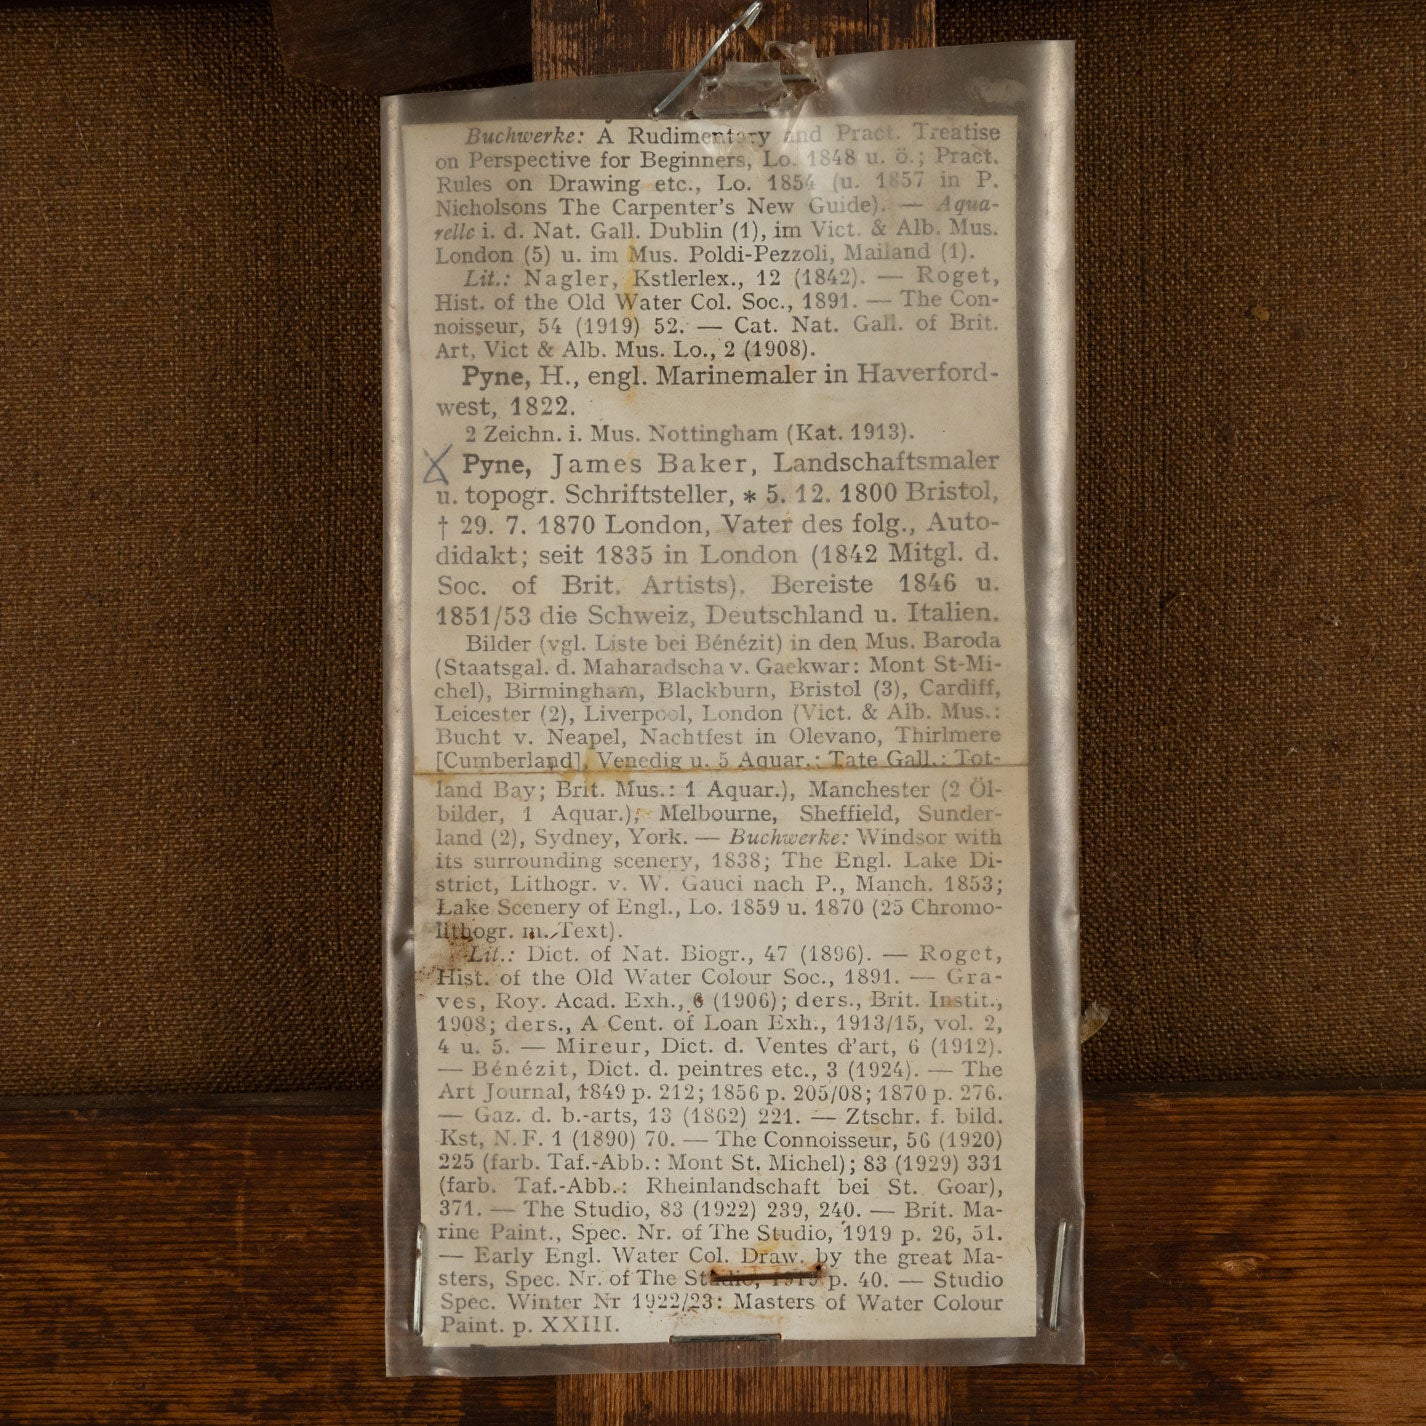 Buchwerke: A Rudimentary and Pract. Treatise
on Perspective for Beginners, Lo. 1848 u. ö.; Pract.
Rules on Drawing etc., Lo. 1854 (u. 1857 in P.
Nicholsons The Carpenter's New Guide). — Aqua-
relle i. d. Nat. Gall. Dublin (1), im Vict. & Alb. Mus.
London (5) u. im Mus. Poldi-Pezzoli, Mailand (1).
Lit.: Nagler, Kstlerlex., 12 (1842). — Roget,
Hist. of the Old Water Col. Soc., 1891. — The Con-
noisseur, 54 (1919) 52. — Cat. Nat. Gall. of Brit.
Art, Vict & Alb. Mus. Lo., 2 (1908).
Pyne, H., engl. Marinemaler in Haverford-
west, 1822.
2 Zeichn. i. Mus. Nottingham (Kat. 1913).
X Pyne, James Baker, Landschaftsmaler
u. topogr. Schriftsteller, * 5. 12. 1800 Bristol,
† 29. 7. 1870 London, Vater des folg., Auto-
didakt; seit 1835 in London (1842 Mitgl. d.
Soc. of Brit. Artists). Bereiste 1846 u.
1851/53 die Schweiz, Deutschland u. Italien.
Bilder (vgl. Liste bei Bénézit) in den Mus. Baroda
(Staatsgal. d. Maharadscha v. Gaekwar: Mont St-Mi-
chel), Birmingham, Blackburn, Bristol (3), Cardiff,
Leicester (2), Liverpool, London (Vict. & Alb. Mus.:
Bucht v. Neapel, Nachtfest in Olevano, Thirlmere
[Cumberland], Venedig u. 5 Aquar.; Tate Gall.: Tot-
land Bay; Brit. Mus.: 1 Aquar.), Manchester (2 Öl-
bilder, 1 Aquar.), Melbourne, Sheffield, Sunder-
land (2), Sydney, York. — Buchwerke: Windsor with
its surrounding scenery, 1838; The Engl. Lake Di-
strict, Lithogr. v. W. Gauci nach P., Manch. 1853;
Lake Scenery of Engl., Lo. 1859 u. 1870 (25 Chromo-
lithogr. m. Text).
Lit.: Dict. of Nat. Biogr., 47 (1896). — Roget,
Hist. of the Old Water Colour Soc., 1891. — Gra-
ves, Roy. Acad. Exh., 6 (1906); ders., Brit. Instit.,
1908; ders., A Cent. of Loan Exh., 1913/15, vol. 2,
4 u. 5. — Mireur, Dict. d. Ventes d'art, 6 (1912).
— Bénézit, Dict. d. peintres etc., 3 (1924). — The
Art Journal, 1849 p. 212; 1856 p. 205/08; 1870 p. 276.
— Gaz. d. b.-arts, 13 (1862) 221. — Ztschr. f. bild.
Kst, N. F. 1 (1890) 70. — The Connoisseur, 56 (1920)
225 (farb. Taf.-Abb.: Mont St. Michel); 83 (1929) 331
(farb. Taf.-Abb.: Rheinlandschaft bei St. Goar),
371. — The Studio, 83 (1922) 239, 240. — Brit. Ma-
rine Paint., Spec. Nr. of The Studio, 1919 p. 26, 51.
— Early Engl. Water Col. Draw. by the great Ma-
sters, Spec. Nr. of The Studio, 1919 p. 40. — Studio
Spec. Winter Nr 1922/23: Masters of Water Colour
Paint. p. XXIII.